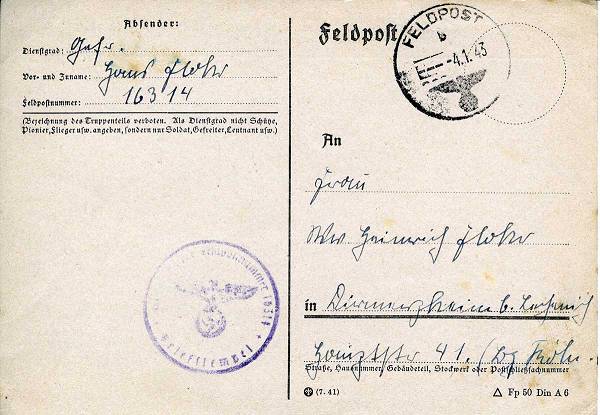 Absender:
Dienstgrad: Gefr.
Vor- und Zuname: Hans Flohr
Feldpostnummer: 16314
(Bezeichnung des Truppenteils verboten. Als Dienstgrad nicht Schütze,
Pionier, Flieger usw. angeben, sondern nur Soldat, Gefreiter, Leutnant usw.)
Feldpost
FELDPOST
b
-4.1.43
An
Frau
Ww Heinrich Flohr
in Dirmerzheim b. Lechenich
Hauptstr 41. (Bz Köln.
Straße, Hausnummer, Gebäudeteil, Stockwerk oder Postschließfachnummer
Feldpostnummer 16314
Briefstempel
(7.41)
Fp 50 Din A 6